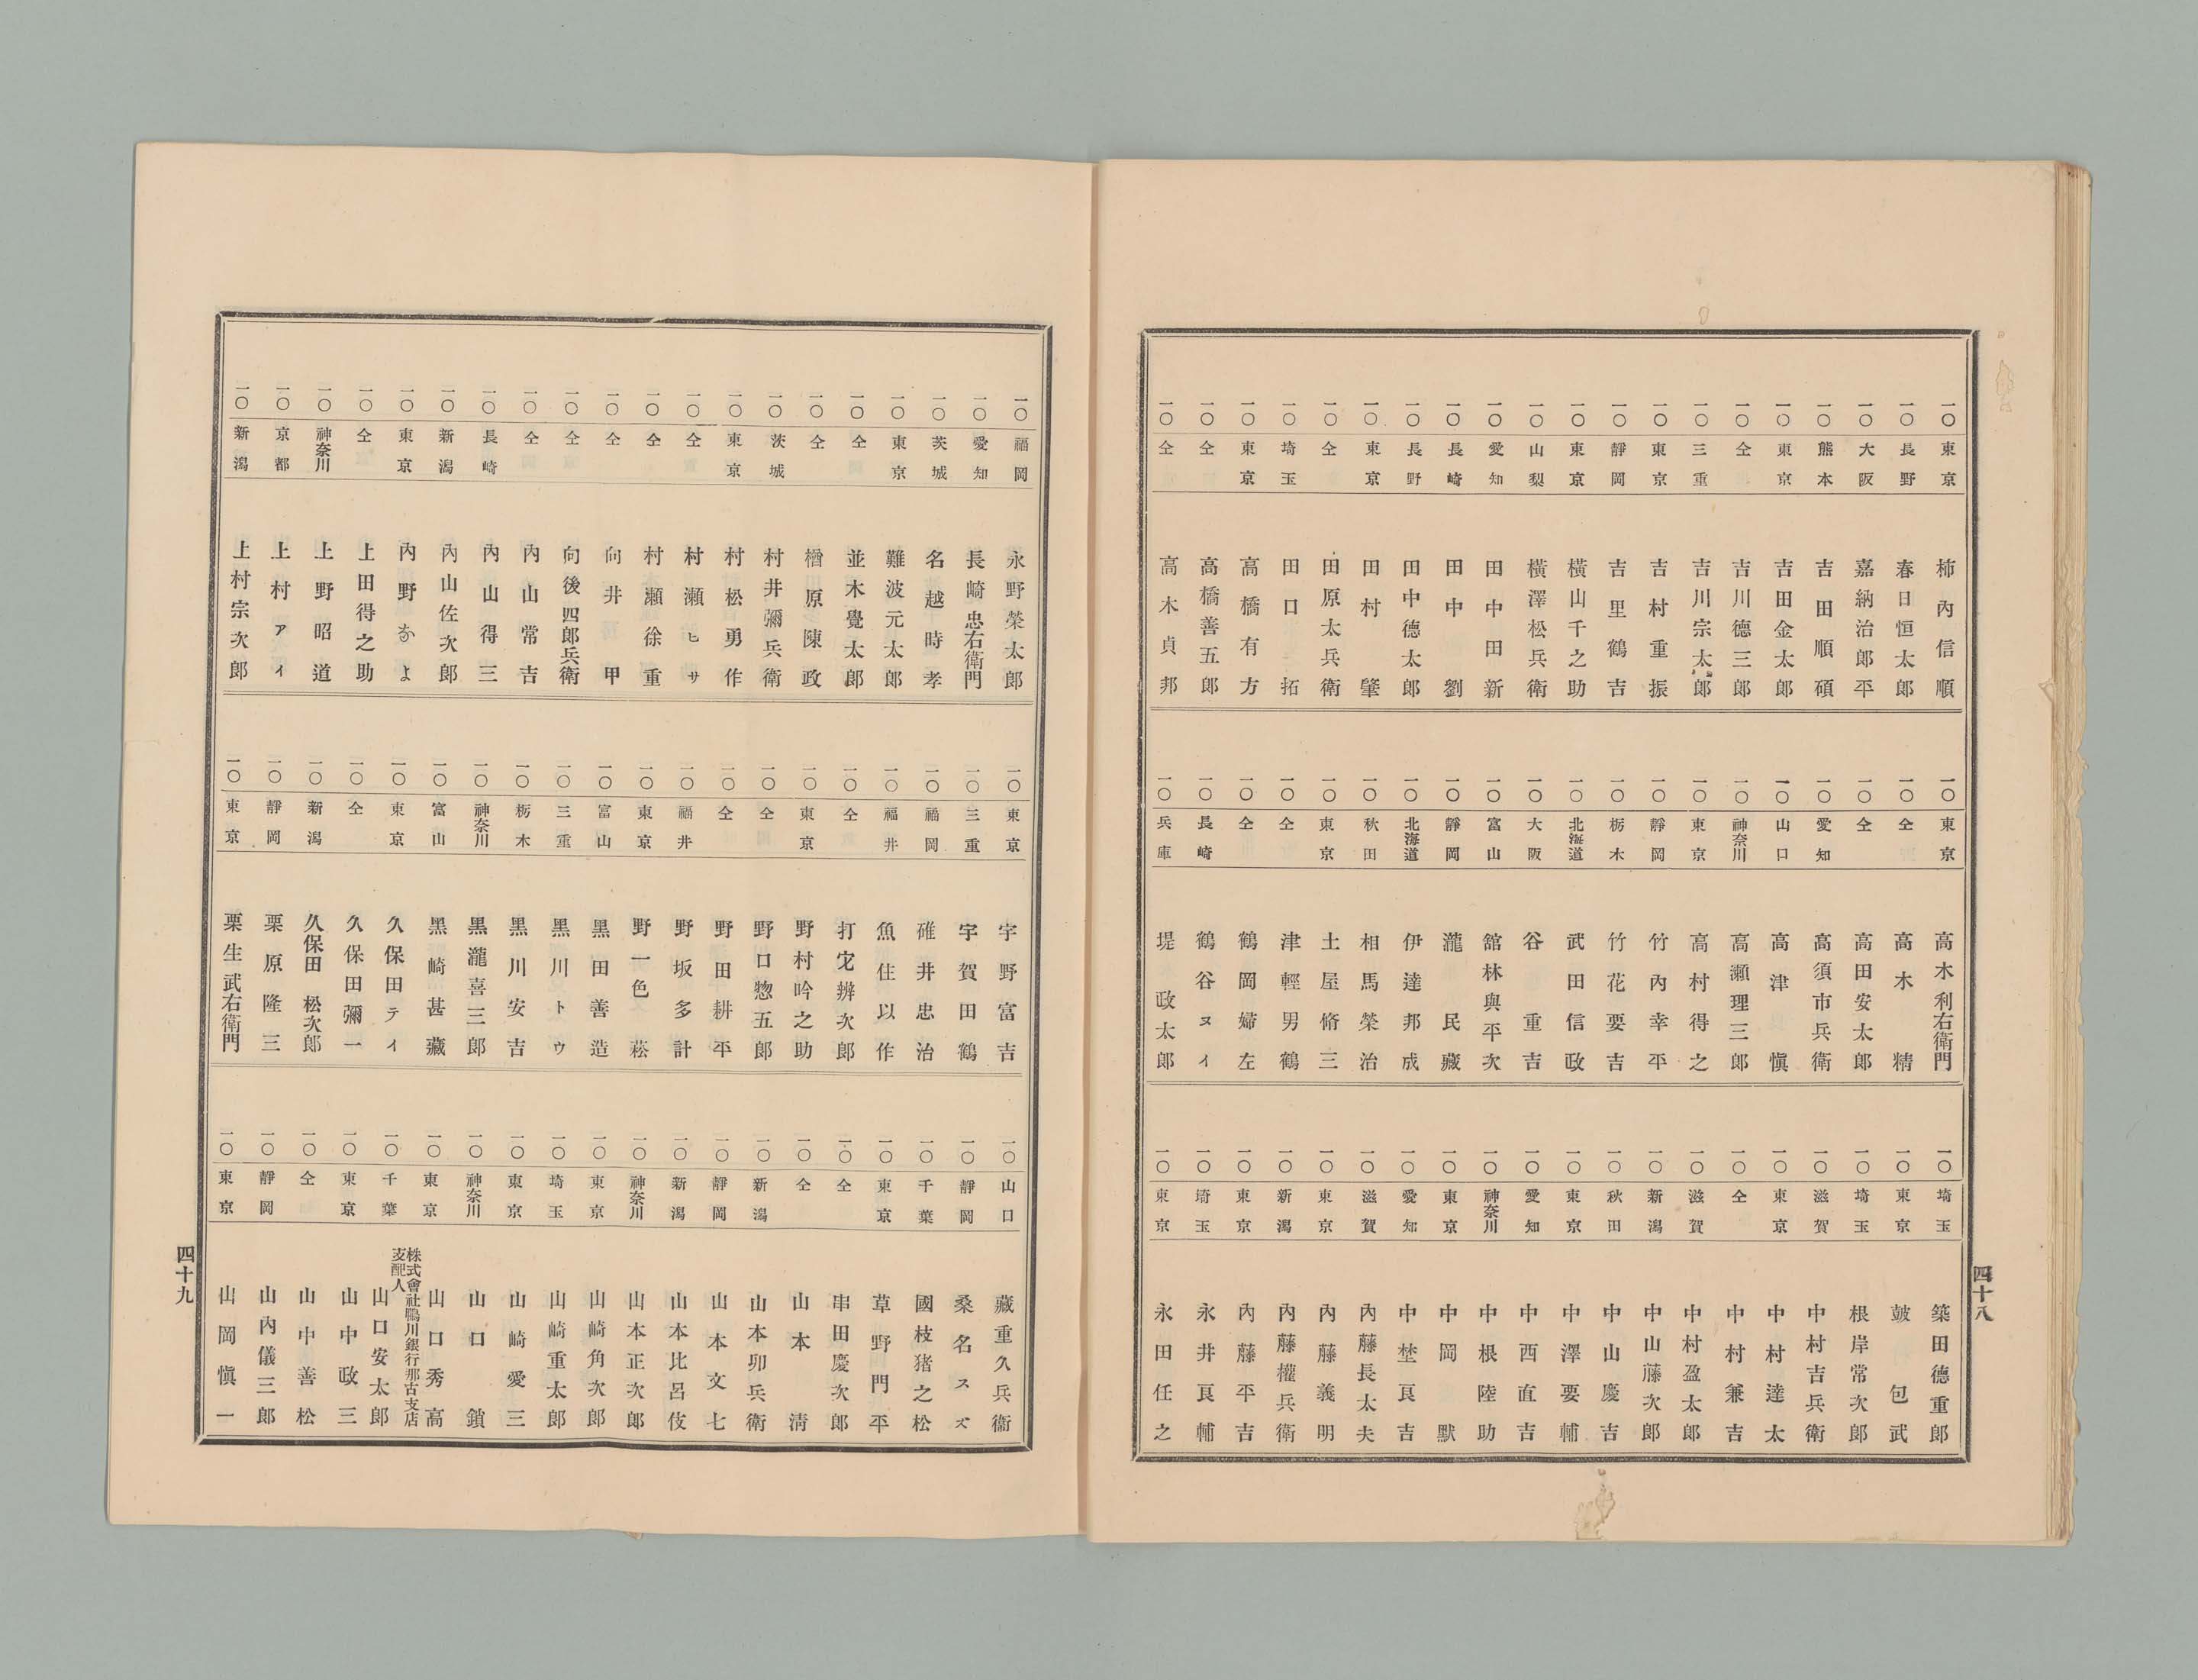 四十八
一〇 東京 柿內信順
一〇 長野 春日恒太郎
一〇 大阪 嘉納治郎平
一〇 熊本 吉田順碩
一〇 東京 吉田金太郎
一〇 仝 吉川德三郎
一〇 三重 吉川宗太郎
一〇 東京 吉村重振
一〇 靜岡 吉里鶴吉
一〇 東京 橫山千之助
一〇 山梨 橫澤松兵衛
一〇 愛知 田中田新
一〇 長崎 田中劉
一〇 長野 田中德太郎
一〇 東京 田村肇
一〇 仝 田原太兵衛
一〇 埼玉 田口拓
一〇 東京 高橋有方
一〇 仝 高橋善五郎
一〇 仝 高木貞邦
一〇 東京 高木利右衛門
一〇 仝 高木精
一〇 仝 高田安太郎
一〇 愛知 高須市兵衛
一〇 山口 高津愼
一〇 神奈川 高瀨理三郎
一〇 東京 高村得之
一〇 靜岡 竹內幸平
一〇 栃木 竹花要吉
一〇 北海道 武田信政
一〇 大阪 谷重吉
一〇 富山 舘林與平次
一〇 靜岡 瀧民藏
一〇 北海道 伊達邦成
一〇 秋田 相馬榮治
一〇 東京 土屋脩三
一〇 仝 津輕男鶴
一〇 仝 鶴岡婦左
一〇 長崎 鶴谷ヌイ
一〇 兵庫 堤政太郎
一〇 埼玉 築田德重郎
一〇 東京 皷包武
一〇 埼玉 根岸常次郎
一〇 滋賀 中村吉兵衛
一〇 東京 中村達太
一〇 仝 中村兼吉
一〇 滋賀 中村盈太郎
一〇 新潟 中山藤次郎
一〇 秋田 中山慶吉
一〇 東京 中澤要輔
一〇 愛知 中西直吉
一〇 神奈川 中根陸助
一〇 東京 中岡默
一〇 愛知 中埜良吉
一〇 滋賀 內藤長太夫
一〇 東京 內藤義明
一〇 新潟 內藤權兵衛
一〇 東京 內藤平吉
一〇 埼玉 永井良輔
一〇 東京 永田任之
一〇 福岡 永野榮太郎
一〇 愛知 長崎忠右衛門
一〇 茨城 名越時孝
一〇 東京 難波元太郎
一〇 仝 並木覺太郎
一〇 仝 楢原陳政
一〇 茨城 村井彌兵衛
一〇 東京 村松勇作
一〇 仝 村瀨ヒサ
一〇 仝 村瀨徐重
一〇 仝 向井甲
一〇 仝 向後四郎兵衛
一〇 仝 內山常吉
一〇 長崎 內山得三
一〇 新潟 內山佐次郎
一〇 東京 內野なよ
一〇 仝 上田得之助
一〇 神奈川 上野昭道
一〇 京都 上村アイ
一〇 新潟 上村宗次郎
一〇 東京 宇野富吉
一〇 三重 宇賀田鶴
一〇 福岡 碓井忠治
一〇 福井 魚住以作
一〇 仝 打宅辨次郎
一〇 東京 野村吟之助
一〇 仝 野口惣五郎
一〇 仝 野田耕平
一〇 福井 野坂多計
一〇 東京 野一色菘
一〇 富山 黑田善造
一〇 三重 黑川トウ
一〇 栃木 黑川安吉
一〇 神奈川 黑瀧喜三郎
一〇 富山 黑崎甚藏
一〇 東京 久保田テイ
一〇 仝 久保田彌一
一〇 新潟 久保田松次郎
一〇 靜岡 栗原隆三
一〇 東京 栗生武右衛門
一〇 山口 藏重久兵衞
一〇 靜岡 桑名スズ
一〇 千葉 國枝猪之松
一〇 東京 草野門平
一〇 仝 串田慶次郎
一〇 仝 山本淸
一〇 新潟 山本卯兵衛
一〇 靜岡 山本文七
一〇 新潟 山本比呂伎
一〇 神奈川 山本正次郎
一〇 東京 山崎角次郎
一〇 埼玉 山崎重太郎
一〇 東京 山崎愛三
一〇 神奈川 山口鎖
一〇 東京 山口秀高
一〇 千葉 株式會社鴨川銀行那古支店支配人 山口安太郎
一〇 東京 山中政三
一〇 仝 山中善松
一〇 靜岡 山內儀三郎
一〇 東京 山岡愼一
四十九